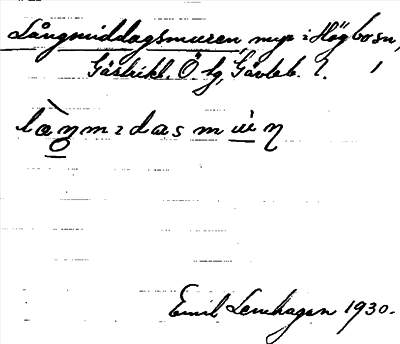 Långmiddagsmuren, myr i Högbo sn,
Gästrikl. Ö tg, Gävleb. l.
Emil Lenhagen 1930.